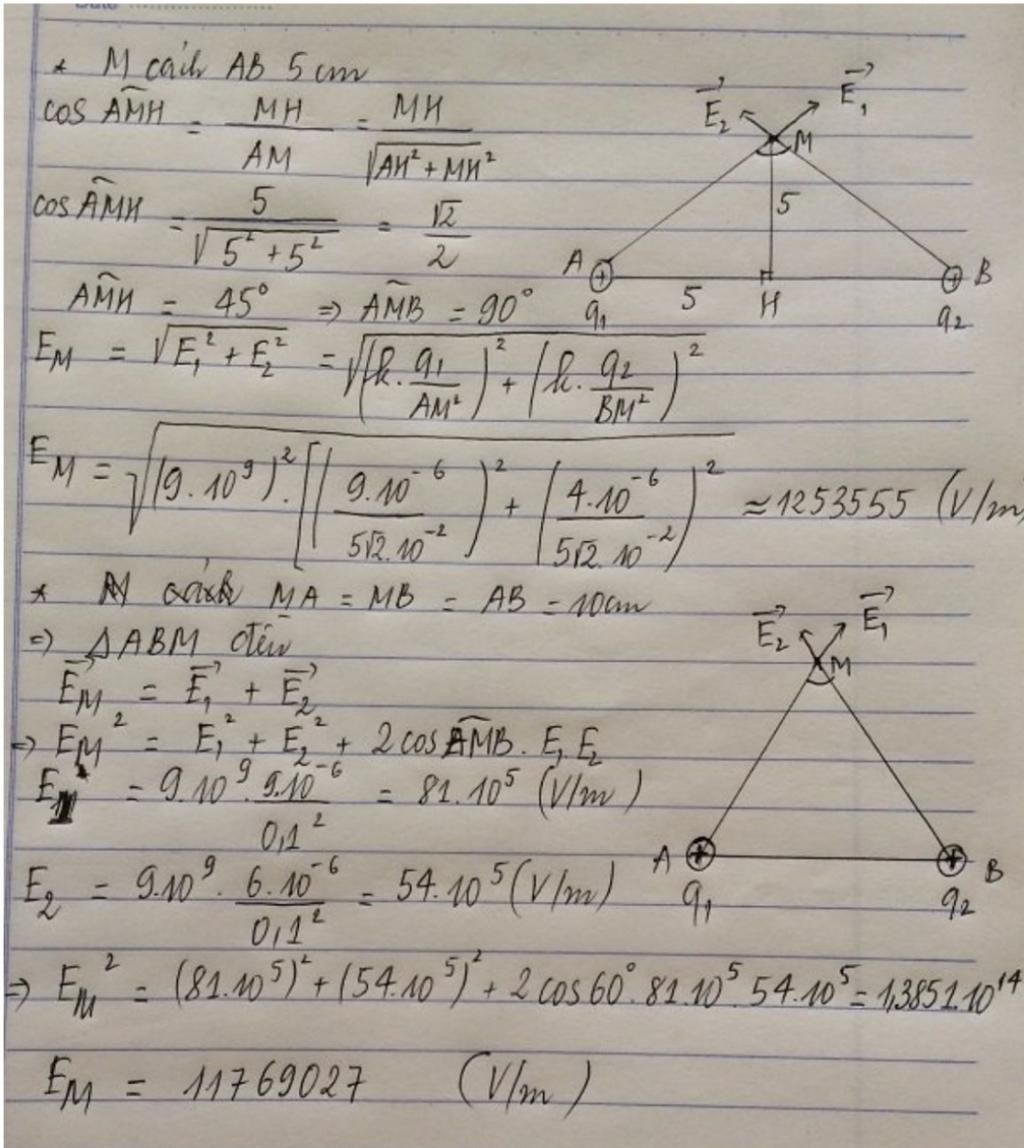 * M cách AB 5 cm
cos AMH = MH/AM = MH/√(AH² + MH²)
cos AMH = 5/√(5² + 5²) = √2/2
AMH = 45° ⇒ AMB = 90°
E₂ E₁ M
5
A B
5 H
q₁ q₂
E_M = √(E₁² + E₂²) = √((k.q₁/AM²)² + (k.q₂/BM²)²)
E_M = √((9.10⁹)².[(9.10⁻⁶/5√2.10⁻²)² + (4.10⁻⁶/5√2.10⁻²)²) ≈ 1253555 (V/m)
* M cách MA = MB = AB = 10cm
⇒ ΔABM đều
E_M = E₁ + E₂
⇒ E_M² = E₁² + E₂² + 2cosAMB. E₁E₂
E₁ = 9.10⁹.9.10⁻⁶/0,1² = 81.10⁵ (V/m)
E₂ E₁ M
A B
q₁ q₂
E₂ = 9.10⁹.6.10⁻⁶/0,1² = 54.10⁵ (V/m)
⇒ E_M² = (81.10⁵)² + (54.10⁵)² + 2cos60°.81.10⁵.54.10⁵ = 1,3851.10¹⁴
E_M = 11769027 (V/m)